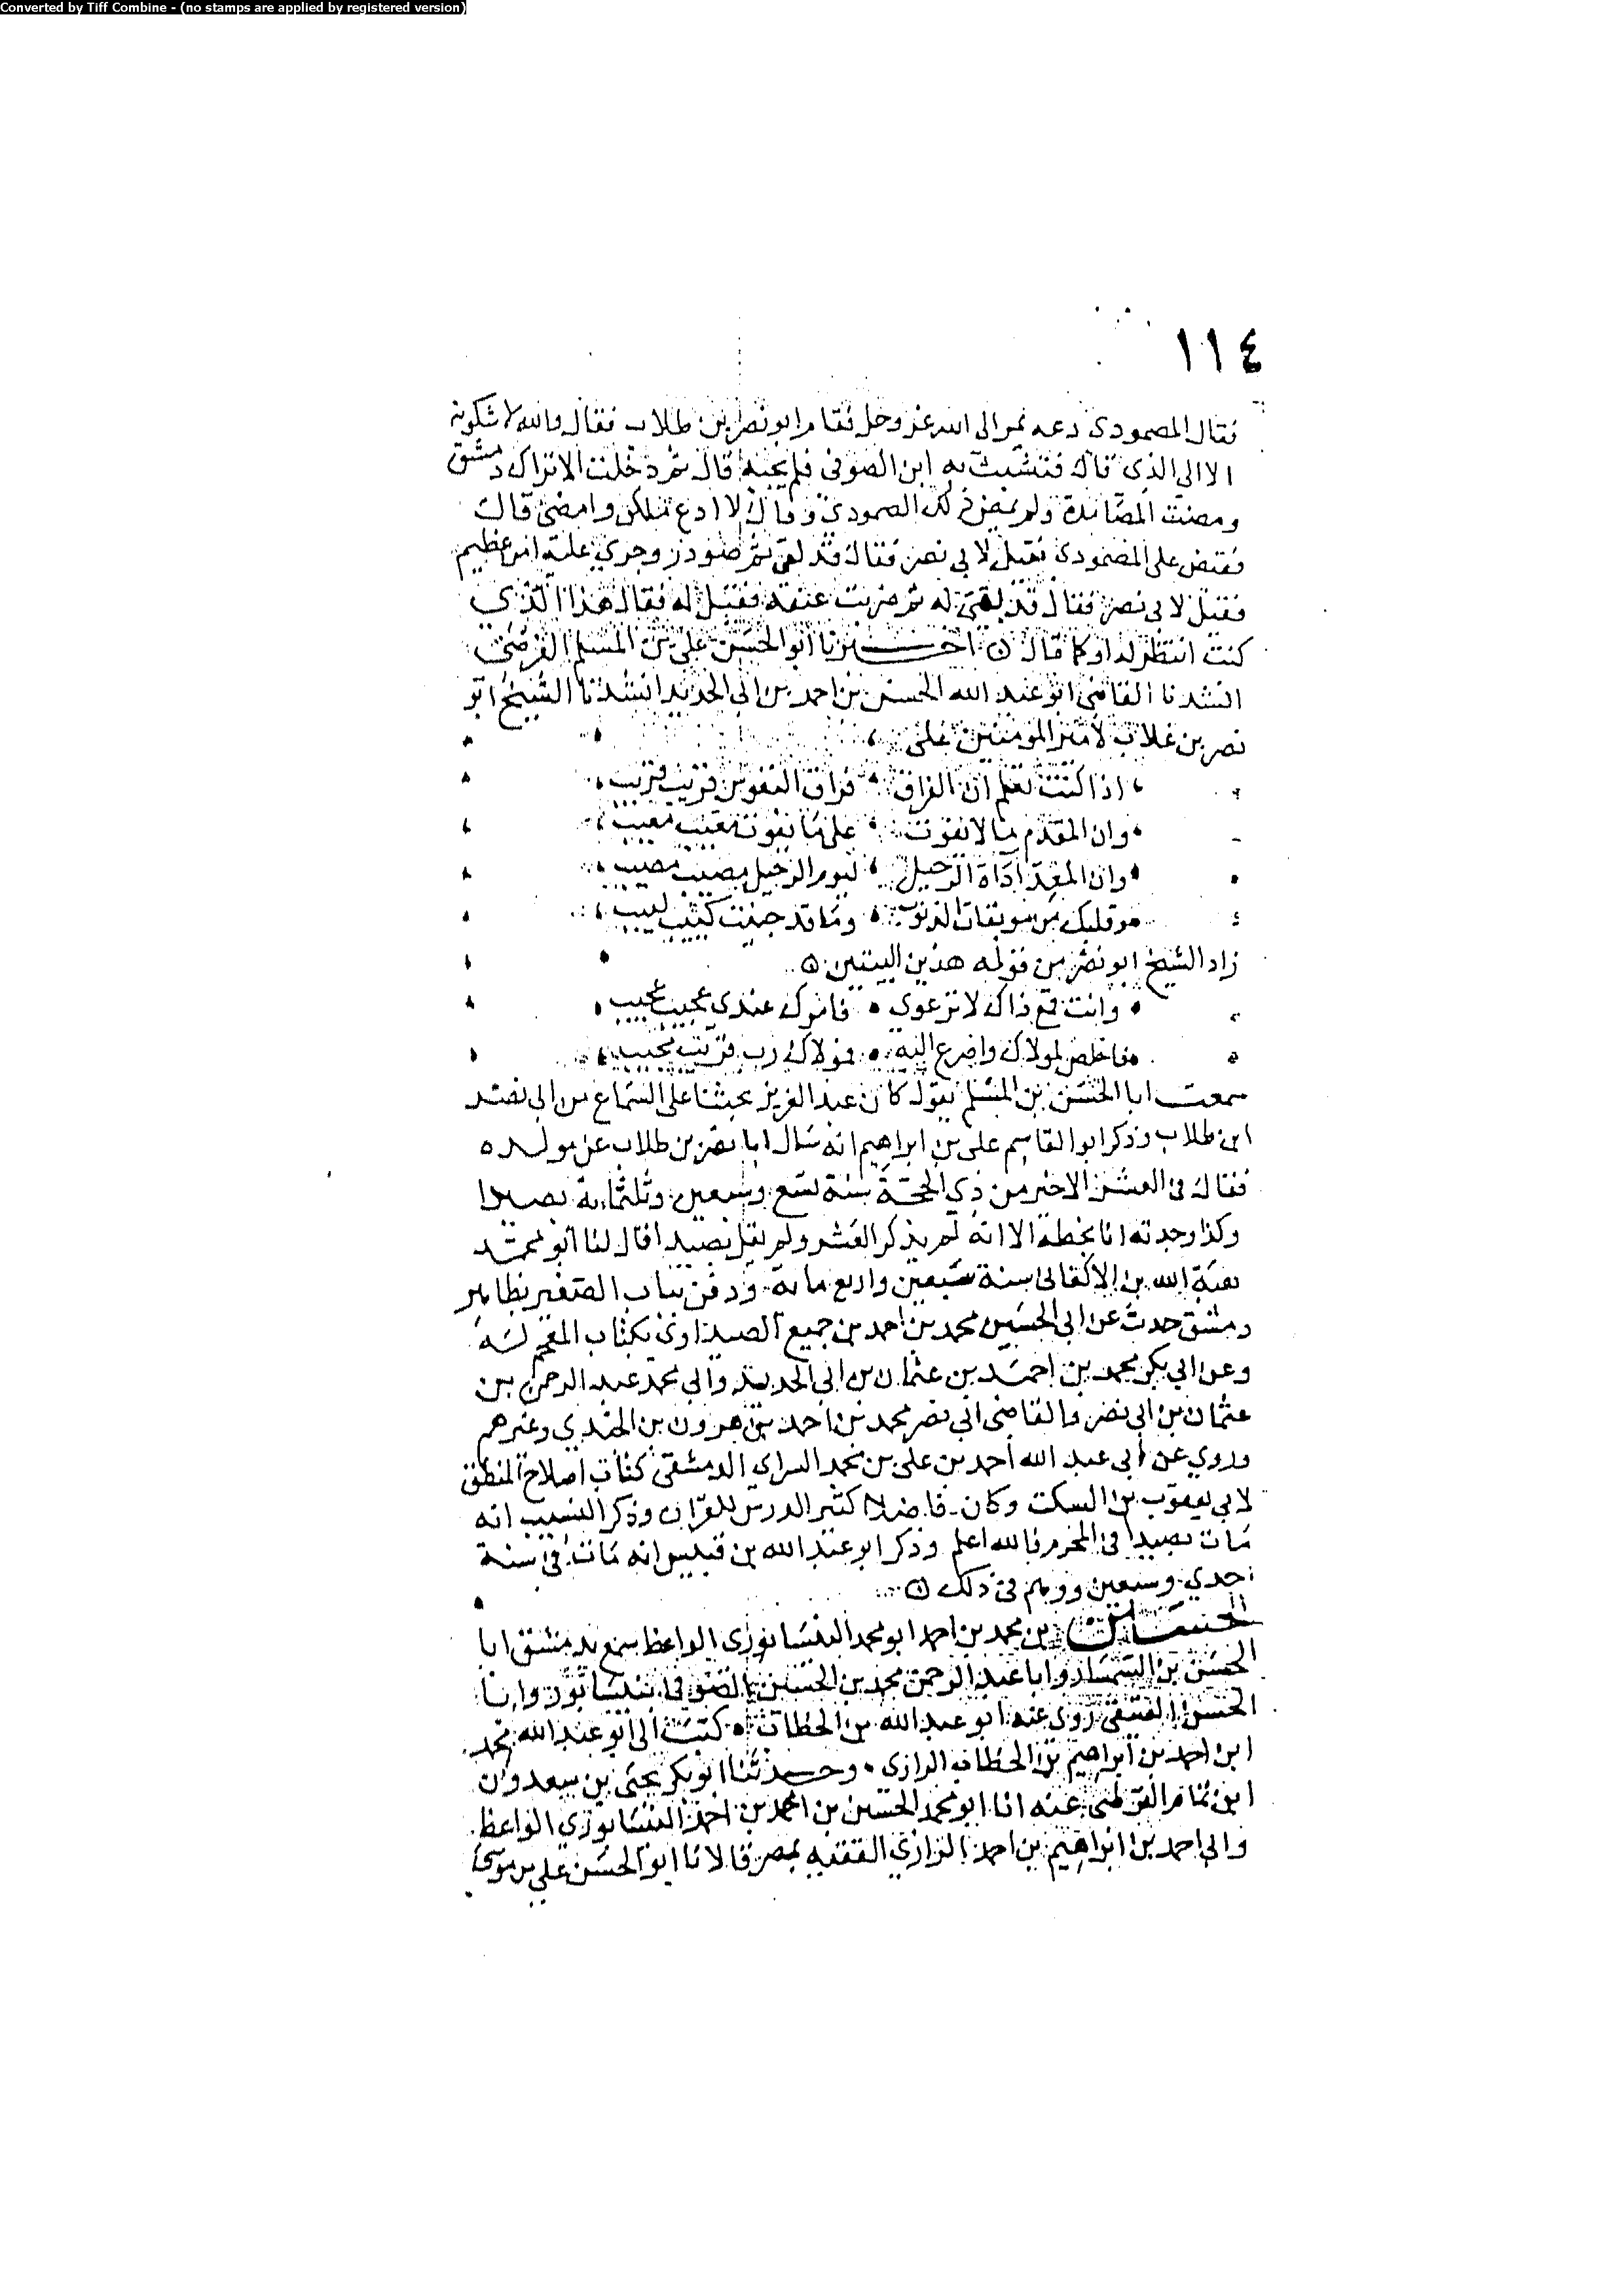 Converted by Tiff Combine - (no stamps are applied by registered version)
١١٤
فقال المصمودي دعه يمر الى الله عز وجل فقام ابو نصر بن طلاب فقال والله لا شكوته
الا الى الذي قال فتشبث به ابن الصوفي فلم يجبه قال ثم دخلت الاتراك دمشق
ومضت المصامدة ولم يمض ذلك المصمودي وقال لا ادع ملكي وامضى قال
فقبض على المصمودي فقيل لابي نصر فقال قد بقى ثم صودر وجرى عليه امر عظيم
فقيل لابي نصر فقال قد بقى له ثم ضربت عنقه فقيل له فقال هذا الذي
كنت انتظر له او كما قال اخبرنا ابو الحسن علي بن المسلم الفرضي
انشدنا القاضي ابو عبد الله الحسن بن احمد بن ابي الحديد انشدنا الشيخ ابو
نصر بن طلاب لامير المومنين على
اذا كنت تعلم ان الفراق فراق النفوس قريب قريب
وان المقدم ما لا يفوت على ما يفوت معيب معيب
وان المعد اداة الرحيل ليوم الرحيل مصيب مصيب
وقلبك من موبقات الذنوب وما قد جنيت كئيب
زاد الشيخ ابو نصر من قوله هذين البيتين
وانت مع ذاك لا ترعوي فامرك عندي عجيب عجيب
فاخلص لمولاك واضرع اليه فمولاك رب قريب مجيب
سمعت ابا الحسن بن المسلم يقول كان عبد العزيز يحثنا على السماع من ابي نصر
ابن طلاب وذكر ابو القاسم على بن ابراهيم انه سال ابا نصر بن طلاب عن مولده
فقال في العشر الاخير من ذي الحجة سنة تسع وسبعين وثلثماية بصيدا
وكذا وجدته انا بخطه الا انه لم يذكر العشر ولم يقل بصيدا قال لنا ابو محمد
هبة الله بن الاكفاني سنة سبعين واربع ماية ودفن بباب الصغير بظاهر
دمشق حدث عن ابي الحسين محمد بن احمد بن جميع الصيداوي بكتاب المعجم له
وعن ابي بكر محمد بن احمد بن عثمان بن ابي الحديد وابي محمد عبد الرحمن بن
عثمان بن ابي نصر والقاضي ابي نصر محمد بن احمد بن هرون بن الجندي وغيرهم
وروي عن ابي عبد الله احمد بن علي بن محمد الدمشقي كتاب اصلاح المنطق
لابي يعقوب بن السكت وكان فاضلا كثير الدرس للقران وذكر النسيب انه
مات بصيدا في المحرم فالله اعلم وذكر ابو عبد الله بن قبيس انه مات في سنة
احدي وسبعين ووهم في ذلك
الحسين بن محمد بن احمد ابو محمد النيسابوري الواعظ سمع بدمشق ابا
الحسن بن السمسار وابا عبد الرحمن محمد بن الحسين الصوفي بنيسابور وابا
الحسن روى عنه ابو عبد الله بن الحطاب كتب الي ابو عبد الله محمد
ابن احمد بن ابراهيم بن الحطاب الرازي وحدثنا ابو بكر يحيى بن سعدون
ابن تمام القرطبي عنه انا ابو محمد الحسين بن محمد بن احمد النيسابوري الواعظ
وابي احمد بن ابراهيم بن احمد الرازي الفقيه بمصر قالا نا ابو الحسن علي بن موسى